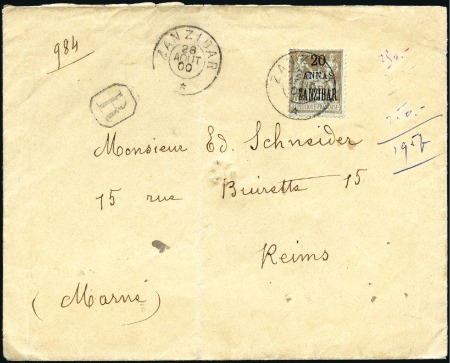 984
ZANZIBAR
28
AOUT
00
R
20
ANNAS
ZANZIBAR
Monsieur Ed. Schneider
15 rue Buirette 15
Reims
(Marne)